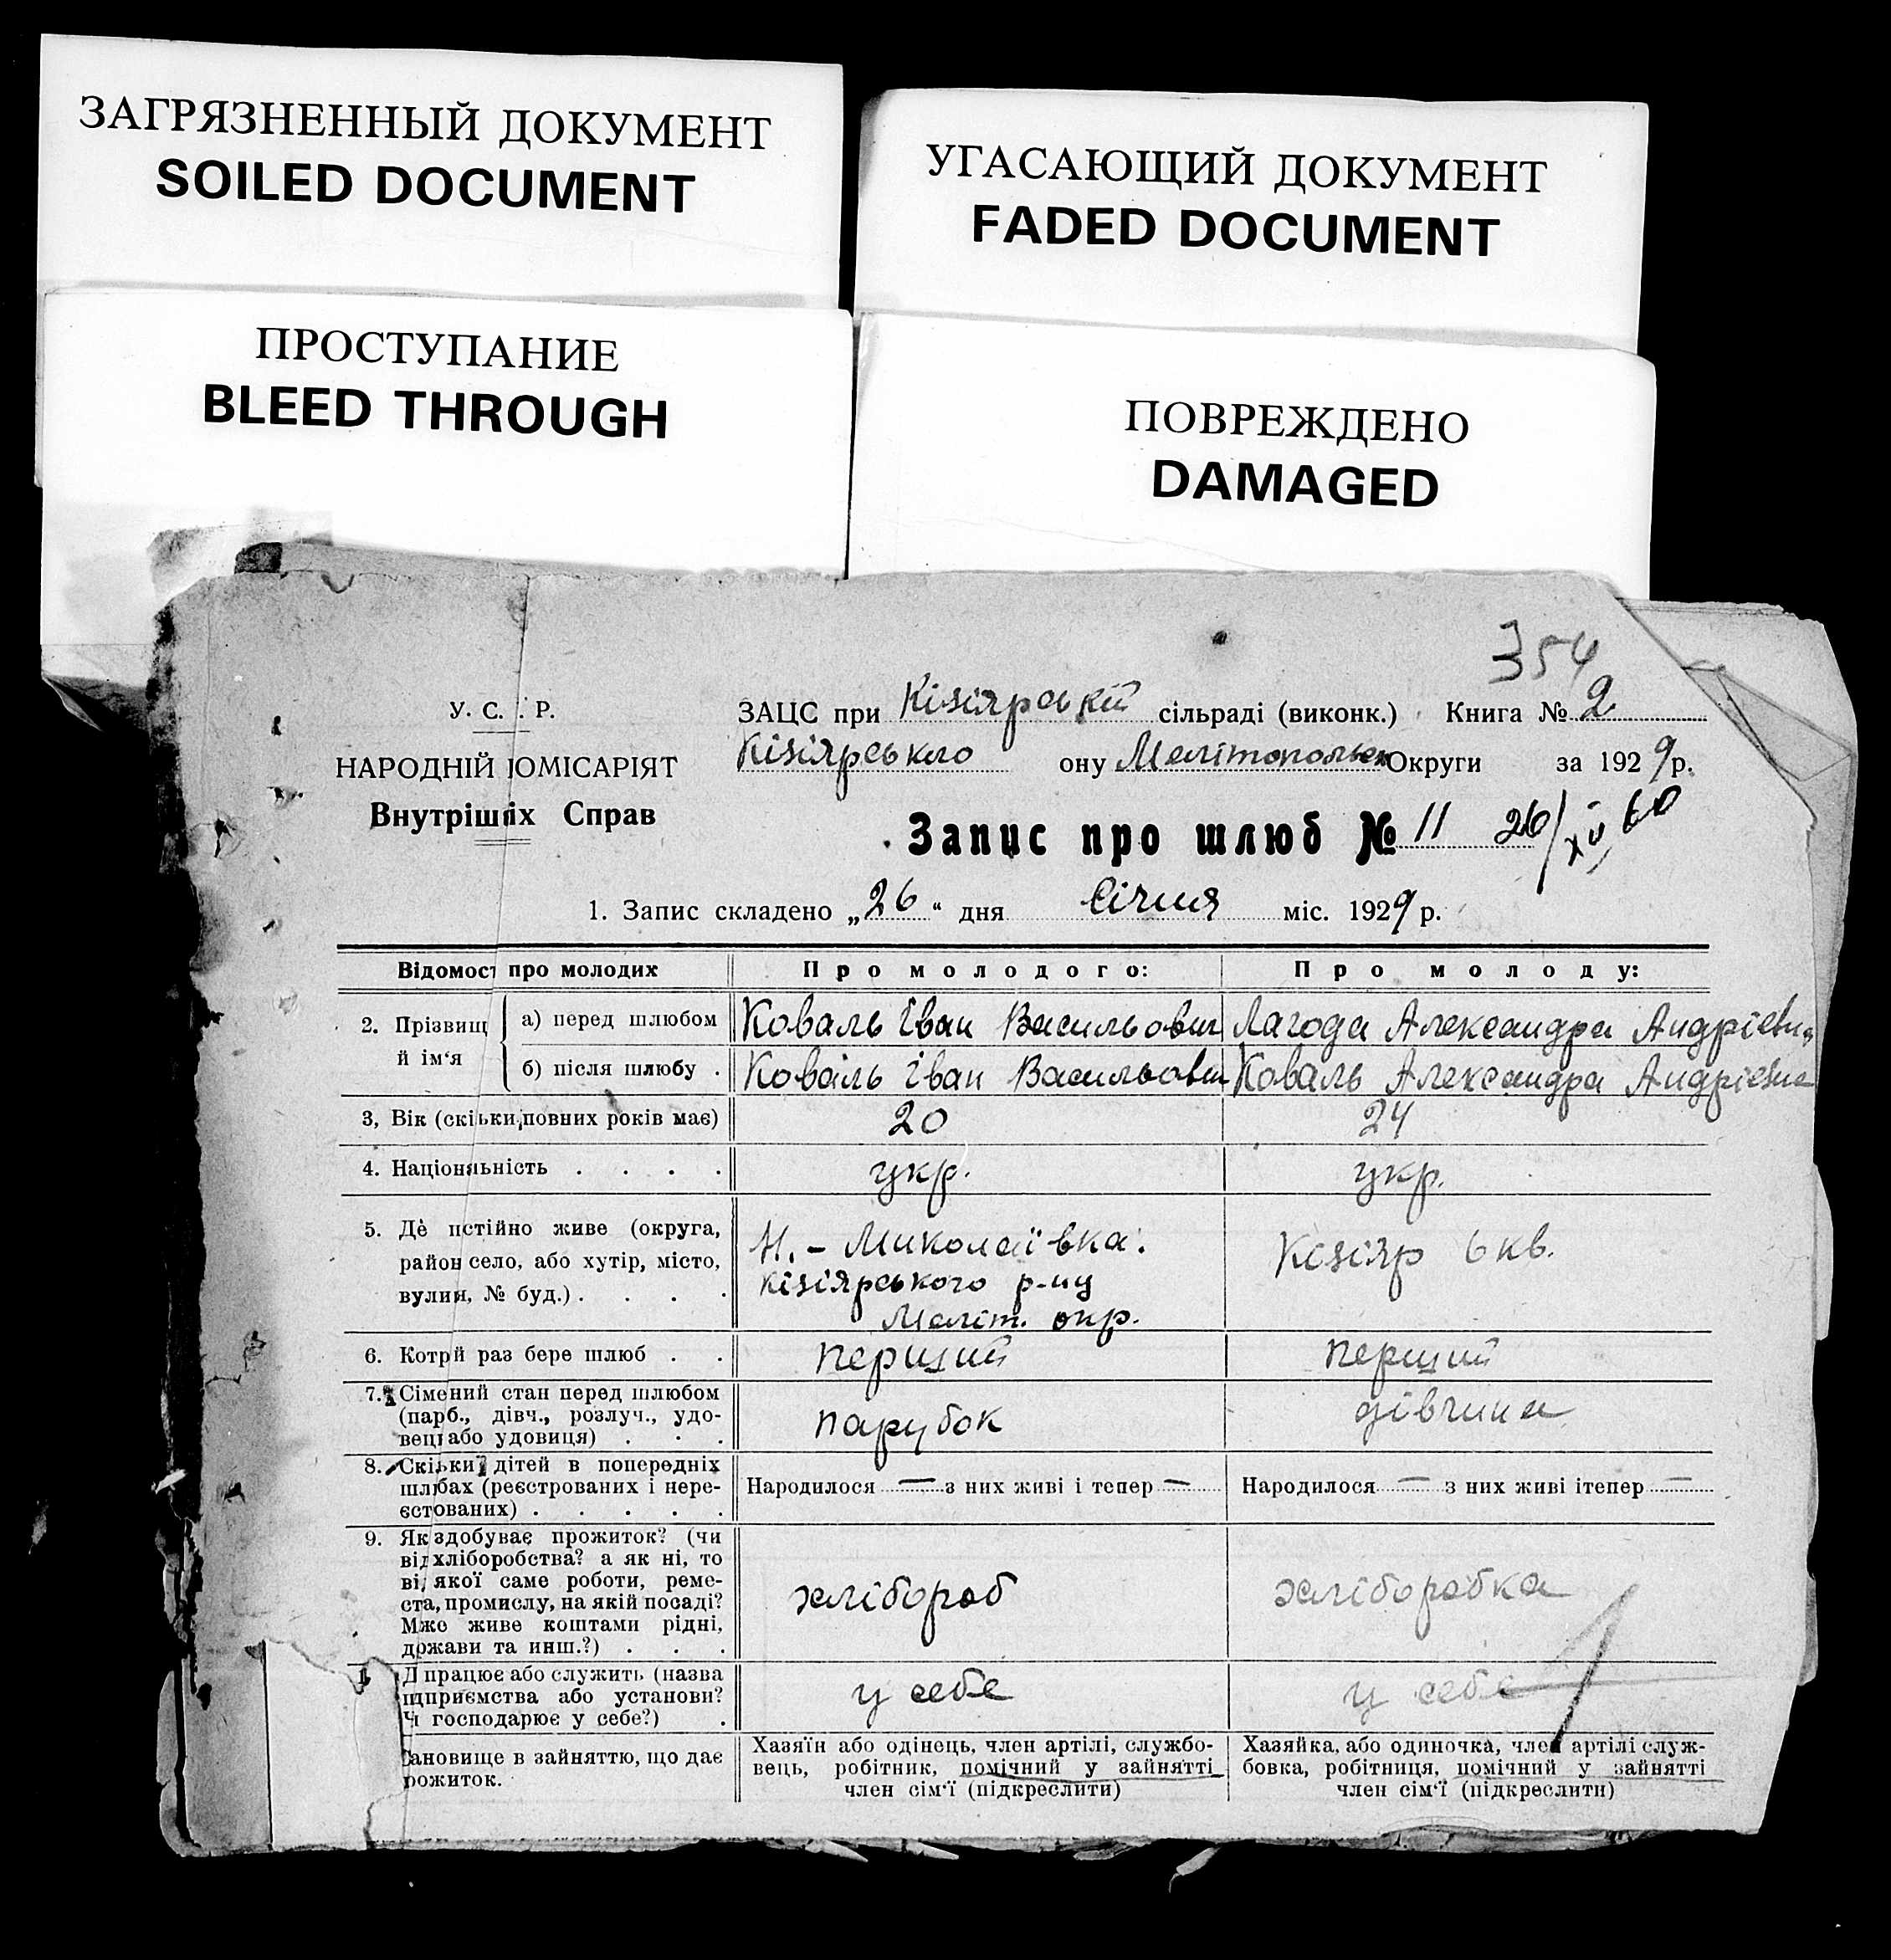 ЗАГРЯЗНЕННЫЙ ДОКУМЕНТ
SOILED DOCUMENT
УГАСАЮЩИЙ ДОКУМЕНТ
FADED DOCUMENT
ПРОСТУПАНИЕ
BLEED THROUGH
ПОВРЕЖДЕНО
DAMAGED
354
У. С. Р.
НАРОДНІЙ ЮМІСАРІЯТ
Внутрішіх Справ
ЗАЦС при Кізіярській сільраді (виконк.) Книга № 2
Кізіярського ону Мелітопольськ Округи за 1929 р.
Запис про шлюб № 11 26/XII 60
1. Запис складено „26“ дня Січня міс. 1929 р.
Відомост про молодих
Про молодого:
Про молоду:
2. Прізвищ й ім‘я
а) перед шлюбом
Коваль Іван Васильович
Лагода Александра Андрієвна
б) після шлюбу .
Коваль Іван Васильович
Коваль Александра Андрієвна
3, Вік (скільки повних років має)
20
24
4. Національність . . . .
укр.
укр.
5. Де пстійно живе (округа,
район село, або хутір, місто,
вулия, № буд.) . . . .
Н. - Миколаївка.
Кізіярського р-ну
Меліт. окр.
Кізіяр 6 кв.
6. Котрй раз бере шлюб . .
перший
перший
7. Сімений стан перед шлюбом
(парб., дівч., розлуч., удо-
вець або удовиця) . . .
парубок
дівчина
8. Скільки дітей в попередніх
шлюбах (реєстрованих і нере-
єстованих) . . . . .
Народилося — з них живі і тепер —
Народилося — з них живі ітепер —
9. Як здобуває прожиток? (чи
від хліборобства? а як ні, то
від якої саме роботи, реме-
ста, промислу, на якій посаді?
Мже живе коштами рідні,
држави та инш.?) . . .
хлібороб
хліборобка
Д працює або служить (назва
підприємства або установи?
Ч господарює у себе?) .
у себе
у себе
тановище в зайняттю, що дає
рожиток.
Хазяїн або одінець, член артілі, службо-
вець, робітник, помічний у зайнятті
член сім‘ї (підкреслити)
Хазяйка, або одиночка, член артілі служ-
бовка, робітниця, помічний у зайнятті
член сім‘ї (підкреслити)